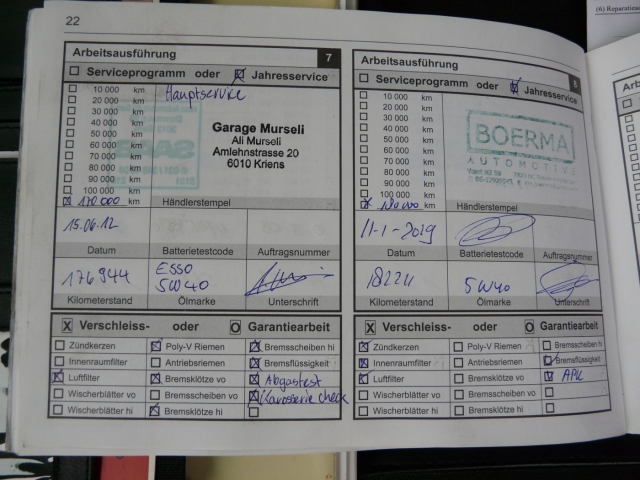 22
(6) Reparatious
Arbeitsausführung 7
Serviceprogramm oder Jahresservice
10 000 km Hauptservice
20 000 km
30 000 km
40 000 km
50 000 km
60 000 km
70 000 km
80 000 km
90 000 km
100 000 km
170 000 km
Garage Murseli
Ali Murseli
Amlehnstrasse 20
6010 Kriens
SAAB
Händlerstempel
15.06.12
Datum Batterietestcode Auftragsnummer
176944 ESSO 5W40
Kilometerstand Ölmarke Unterschrift
X Verschleiss- oder O Garantiearbeit
Zündkerzen Poly-V Riemen Bremsscheiben hi
Innenraumfilter Antriebsriemen Bremsflüssigkeit
Luftfilter Bremsklötze vo Abgastest
Wischerblätter vo Bremsscheiben vo Karosserie check
Wischerblätter hi Bremsklötze hi
Arbeitsausführung 8
Serviceprogramm oder Jahresservice
10 000 km
20 000 km
30 000 km
40 000 km
50 000 km
60 000 km
70 000 km
80 000 km
90 000 km
100 000 km
180 000 km
BOERMA
AUTOMOTIVE
Händlerstempel
11-1-2019
Datum Batterietestcode Auftragsnummer
182211 5W40
Kilometerstand Ölmarke Unterschrift
X Verschleiss- oder O Garantiearbeit
Zündkerzen Poly-V Riemen Bremsscheiben hi
Innenraumfilter Antriebsriemen Bremsflüssigkeit
Luftfilter Bremsklötze vo APK
Wischerblätter vo Bremsscheiben vo
Wischerblätter hi Bremsklötze hi